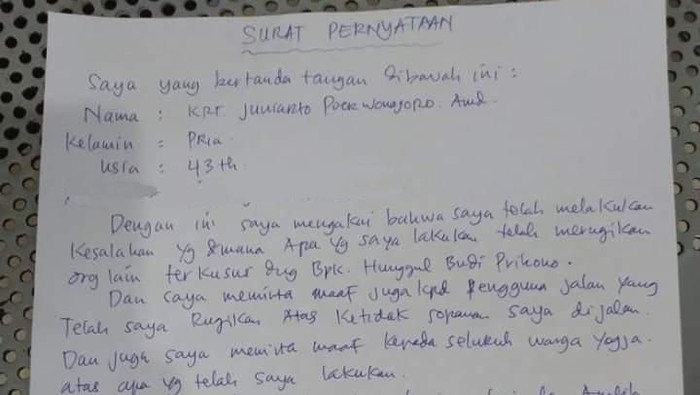 SURAT PERNYATAAN
Saya yang bertanda tangan dibawah ini :
Nama : KRT Junianto Poerwonagoro. Amd.
Kelamin = PRia.
Usia : 43 th
Dengan ini saya mengakui bahwa saya telah melakukan
Kesalahan Yg dmana Apa Yg saya lakukan telah merugikan
org lain terkusus dng Bpk. Hunggul Budi Prihono.
Dan saya meminta maaf juga kpd Pengguna jalan yang
Telah saya Rugikan Atas Ketidak sopanan saya dijalan.
Dan juga saya meminta maaf kepada seluruh warga Yogja.
atas apa yg telah saya lakukan.